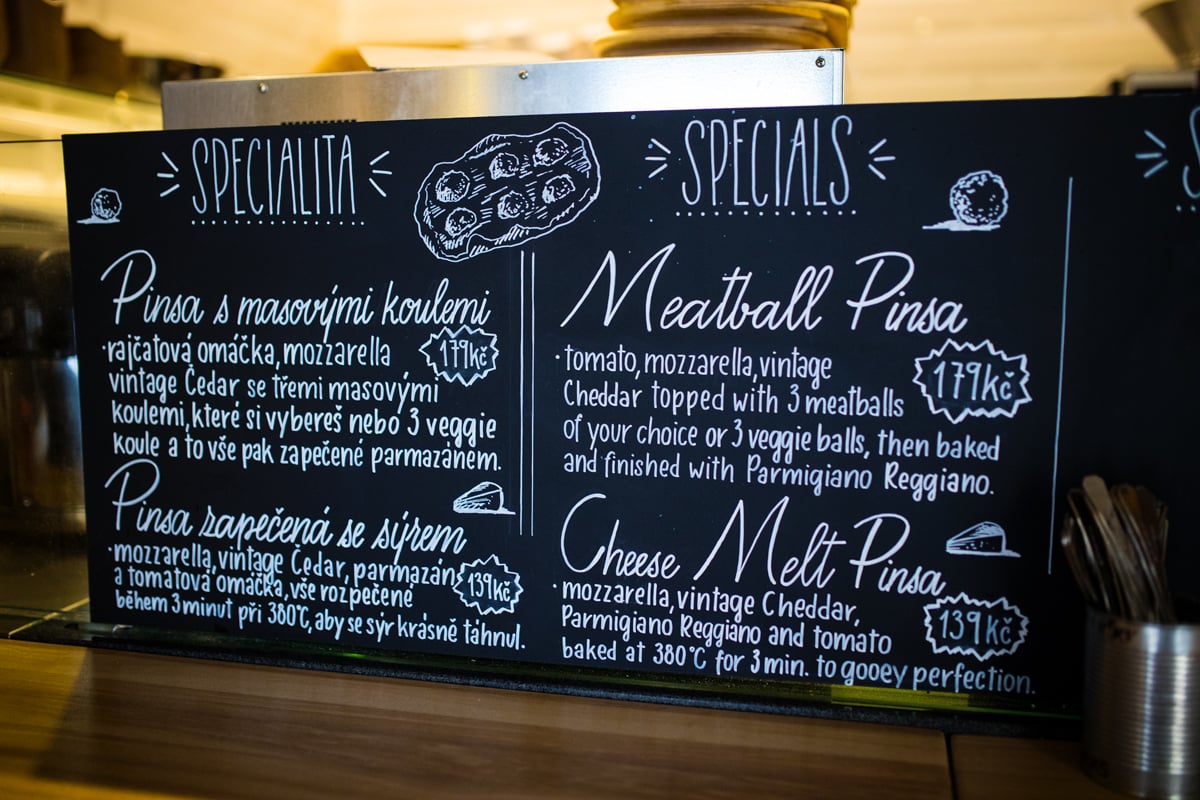 SPECIALITA
Pinsa s masovými koulemi
rajčatová omáčka, mozzarella
179kč
vintage Čedar se třemi masovými
koulemi, které si vybereš nebo 3 veggie
koule a to vše pak zapečené parmazánem.
Pinsa zapečená se sýrem
mozzarella, vintage Čedar, parmazán
139kč
a tomatová omáčka, vše rozpečené
během 3 minut při 380°C, aby se sýr krásně táhnul.
SPECIALS
Meatball Pinsa
tomato, mozzarella, vintage
179kč
Cheddar topped with 3 meatballs
of your choice or 3 veggie balls, then baked
and finished with Parmigiano Reggiano.
Cheese Melt Pinsa
mozzarella, vintage Cheddar,
139kč
Parmigiano Reggiano and tomato
baked at 380°C for 3 min. to gooey perfection.